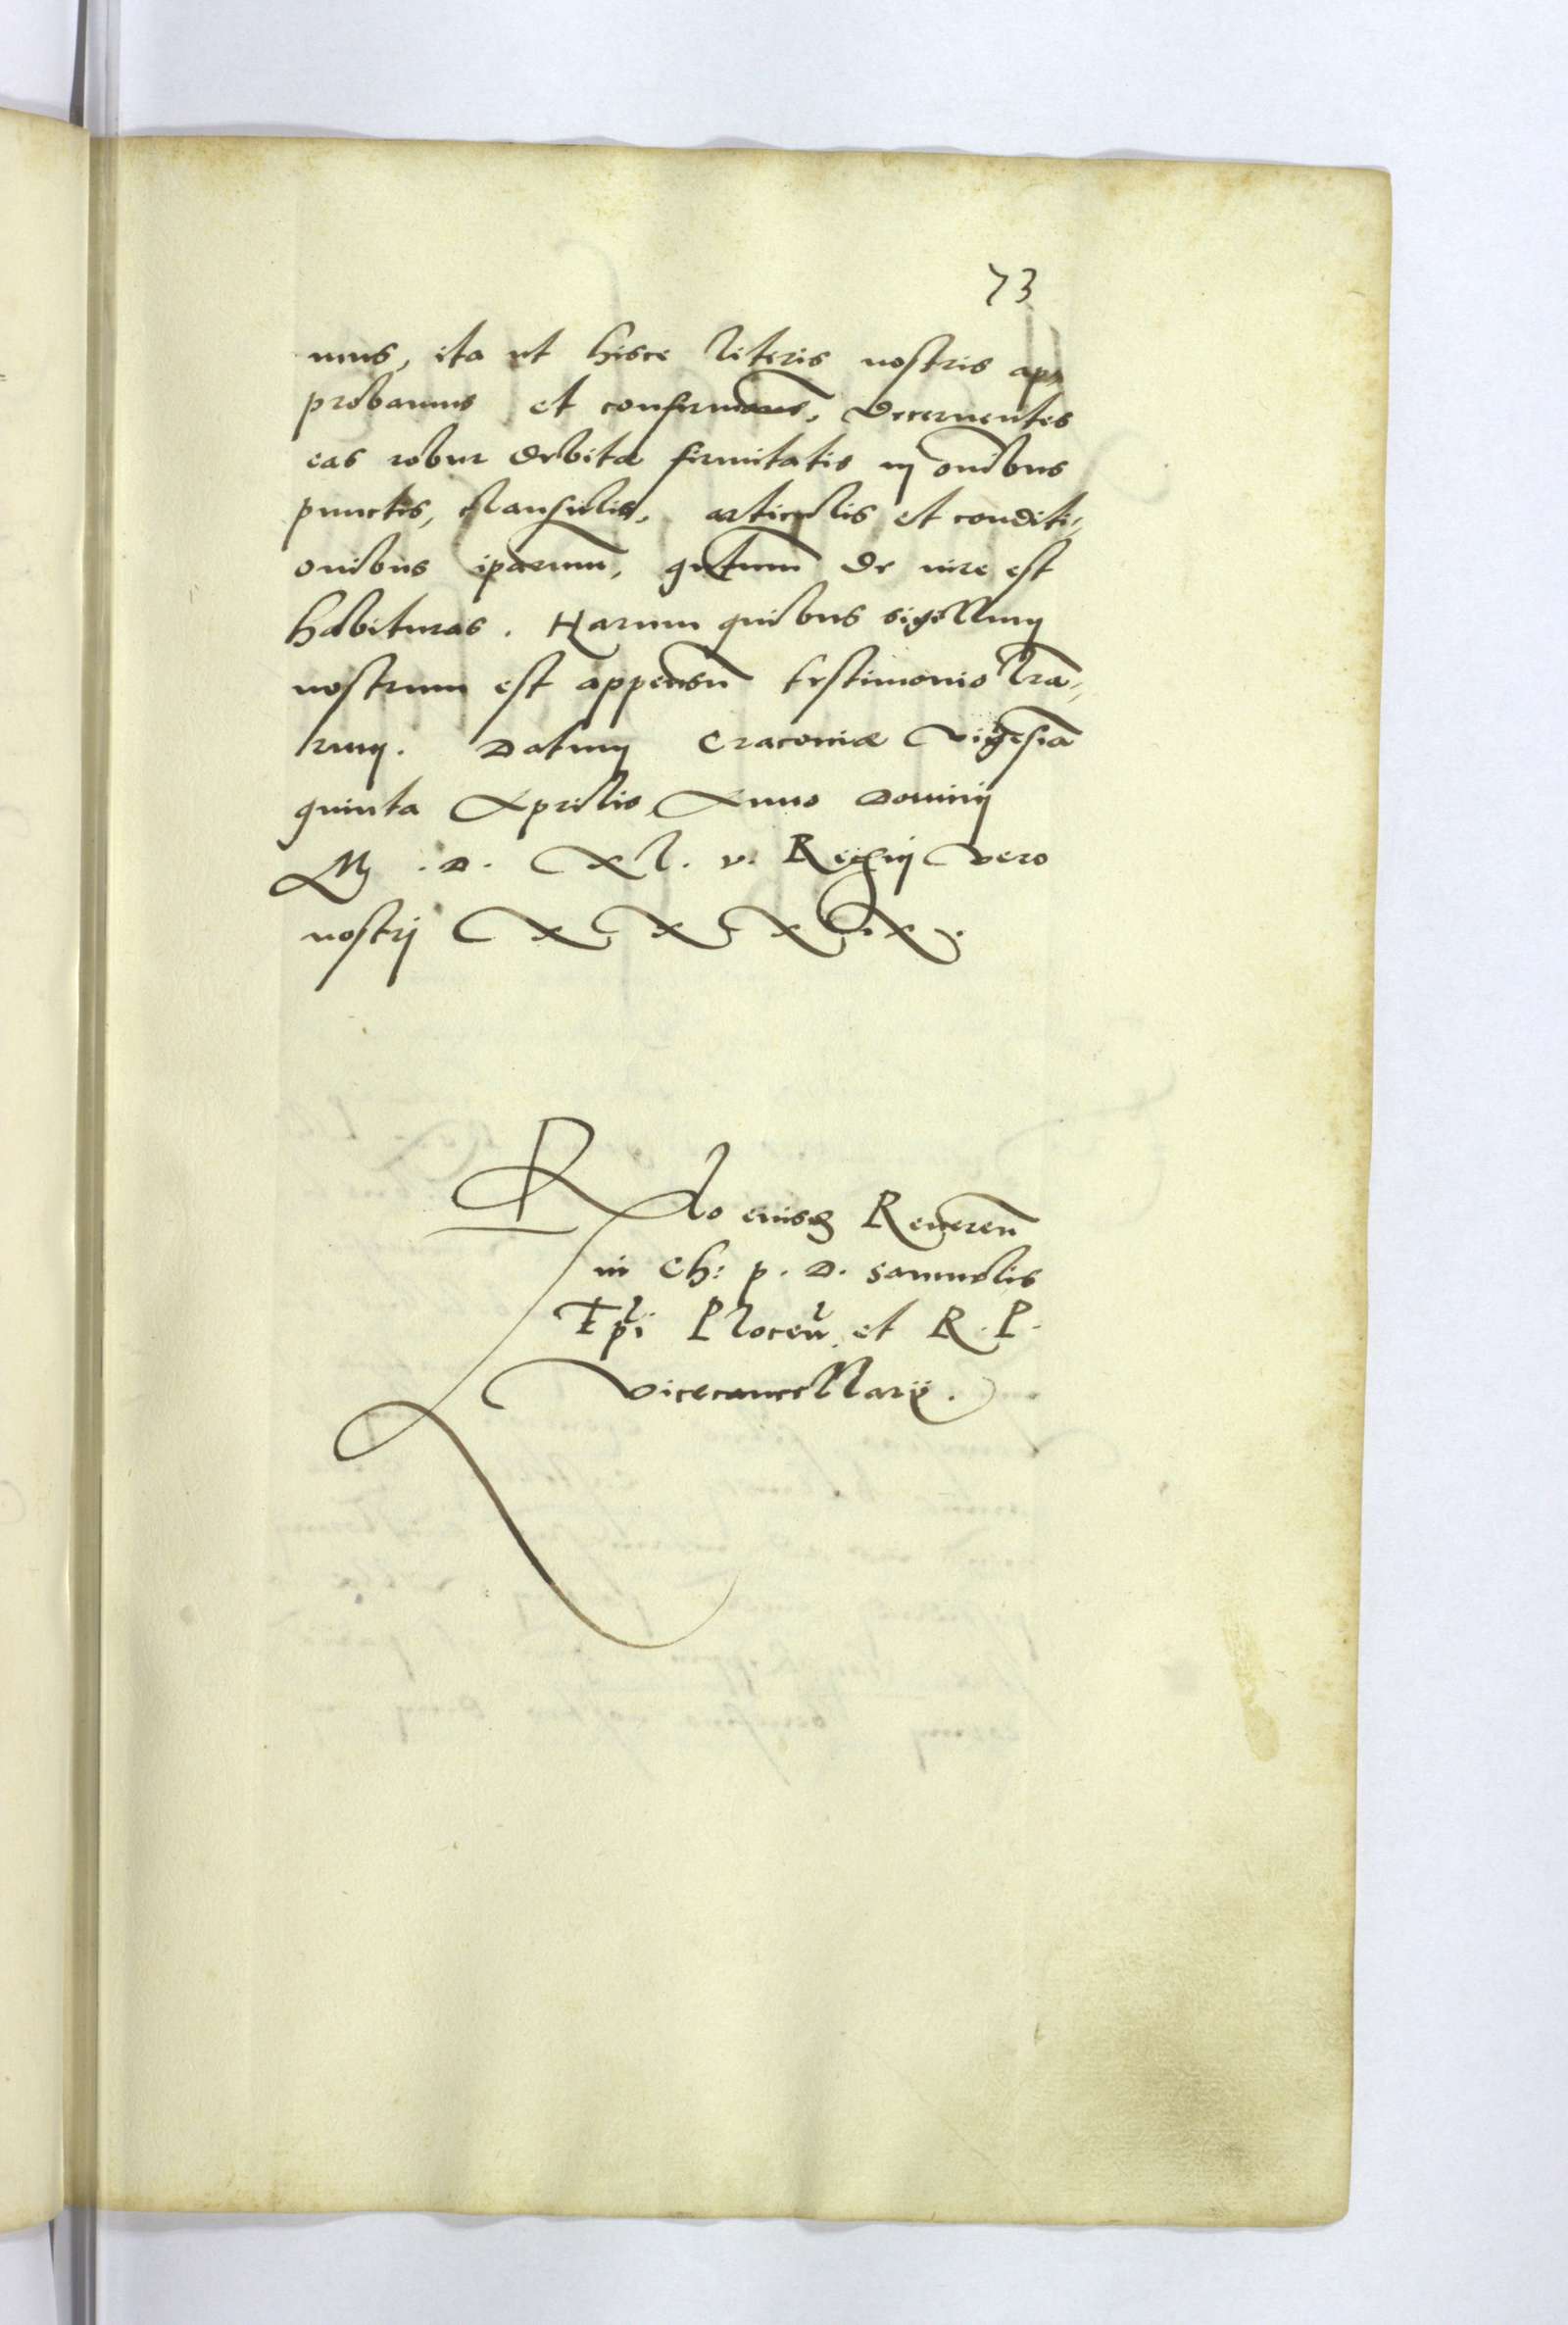 73
mus, ita ut hisce literis nostris ap-
probamus et confirmamus, decernentes
eas robur debitæ firmitatis in om̄ibus
punctis, clausulis, articulis et conditi-
onibus ip̄arum, q̄ntum de iure est
habituras. Harum quibus sigellum
nostrum est appensū testimonio l̄ra-
rum. Datum Cracoviæ Vigesīa
quinta Aprilis Anno Domini
M. D. XL. v. Regni vero
nostri XXXIX.
R̄elāo eiusdē Reveren̄
in Ch: p. D. Samuelis
Ep̄i Plocen̄ et R. P.
Vicecancellarij.